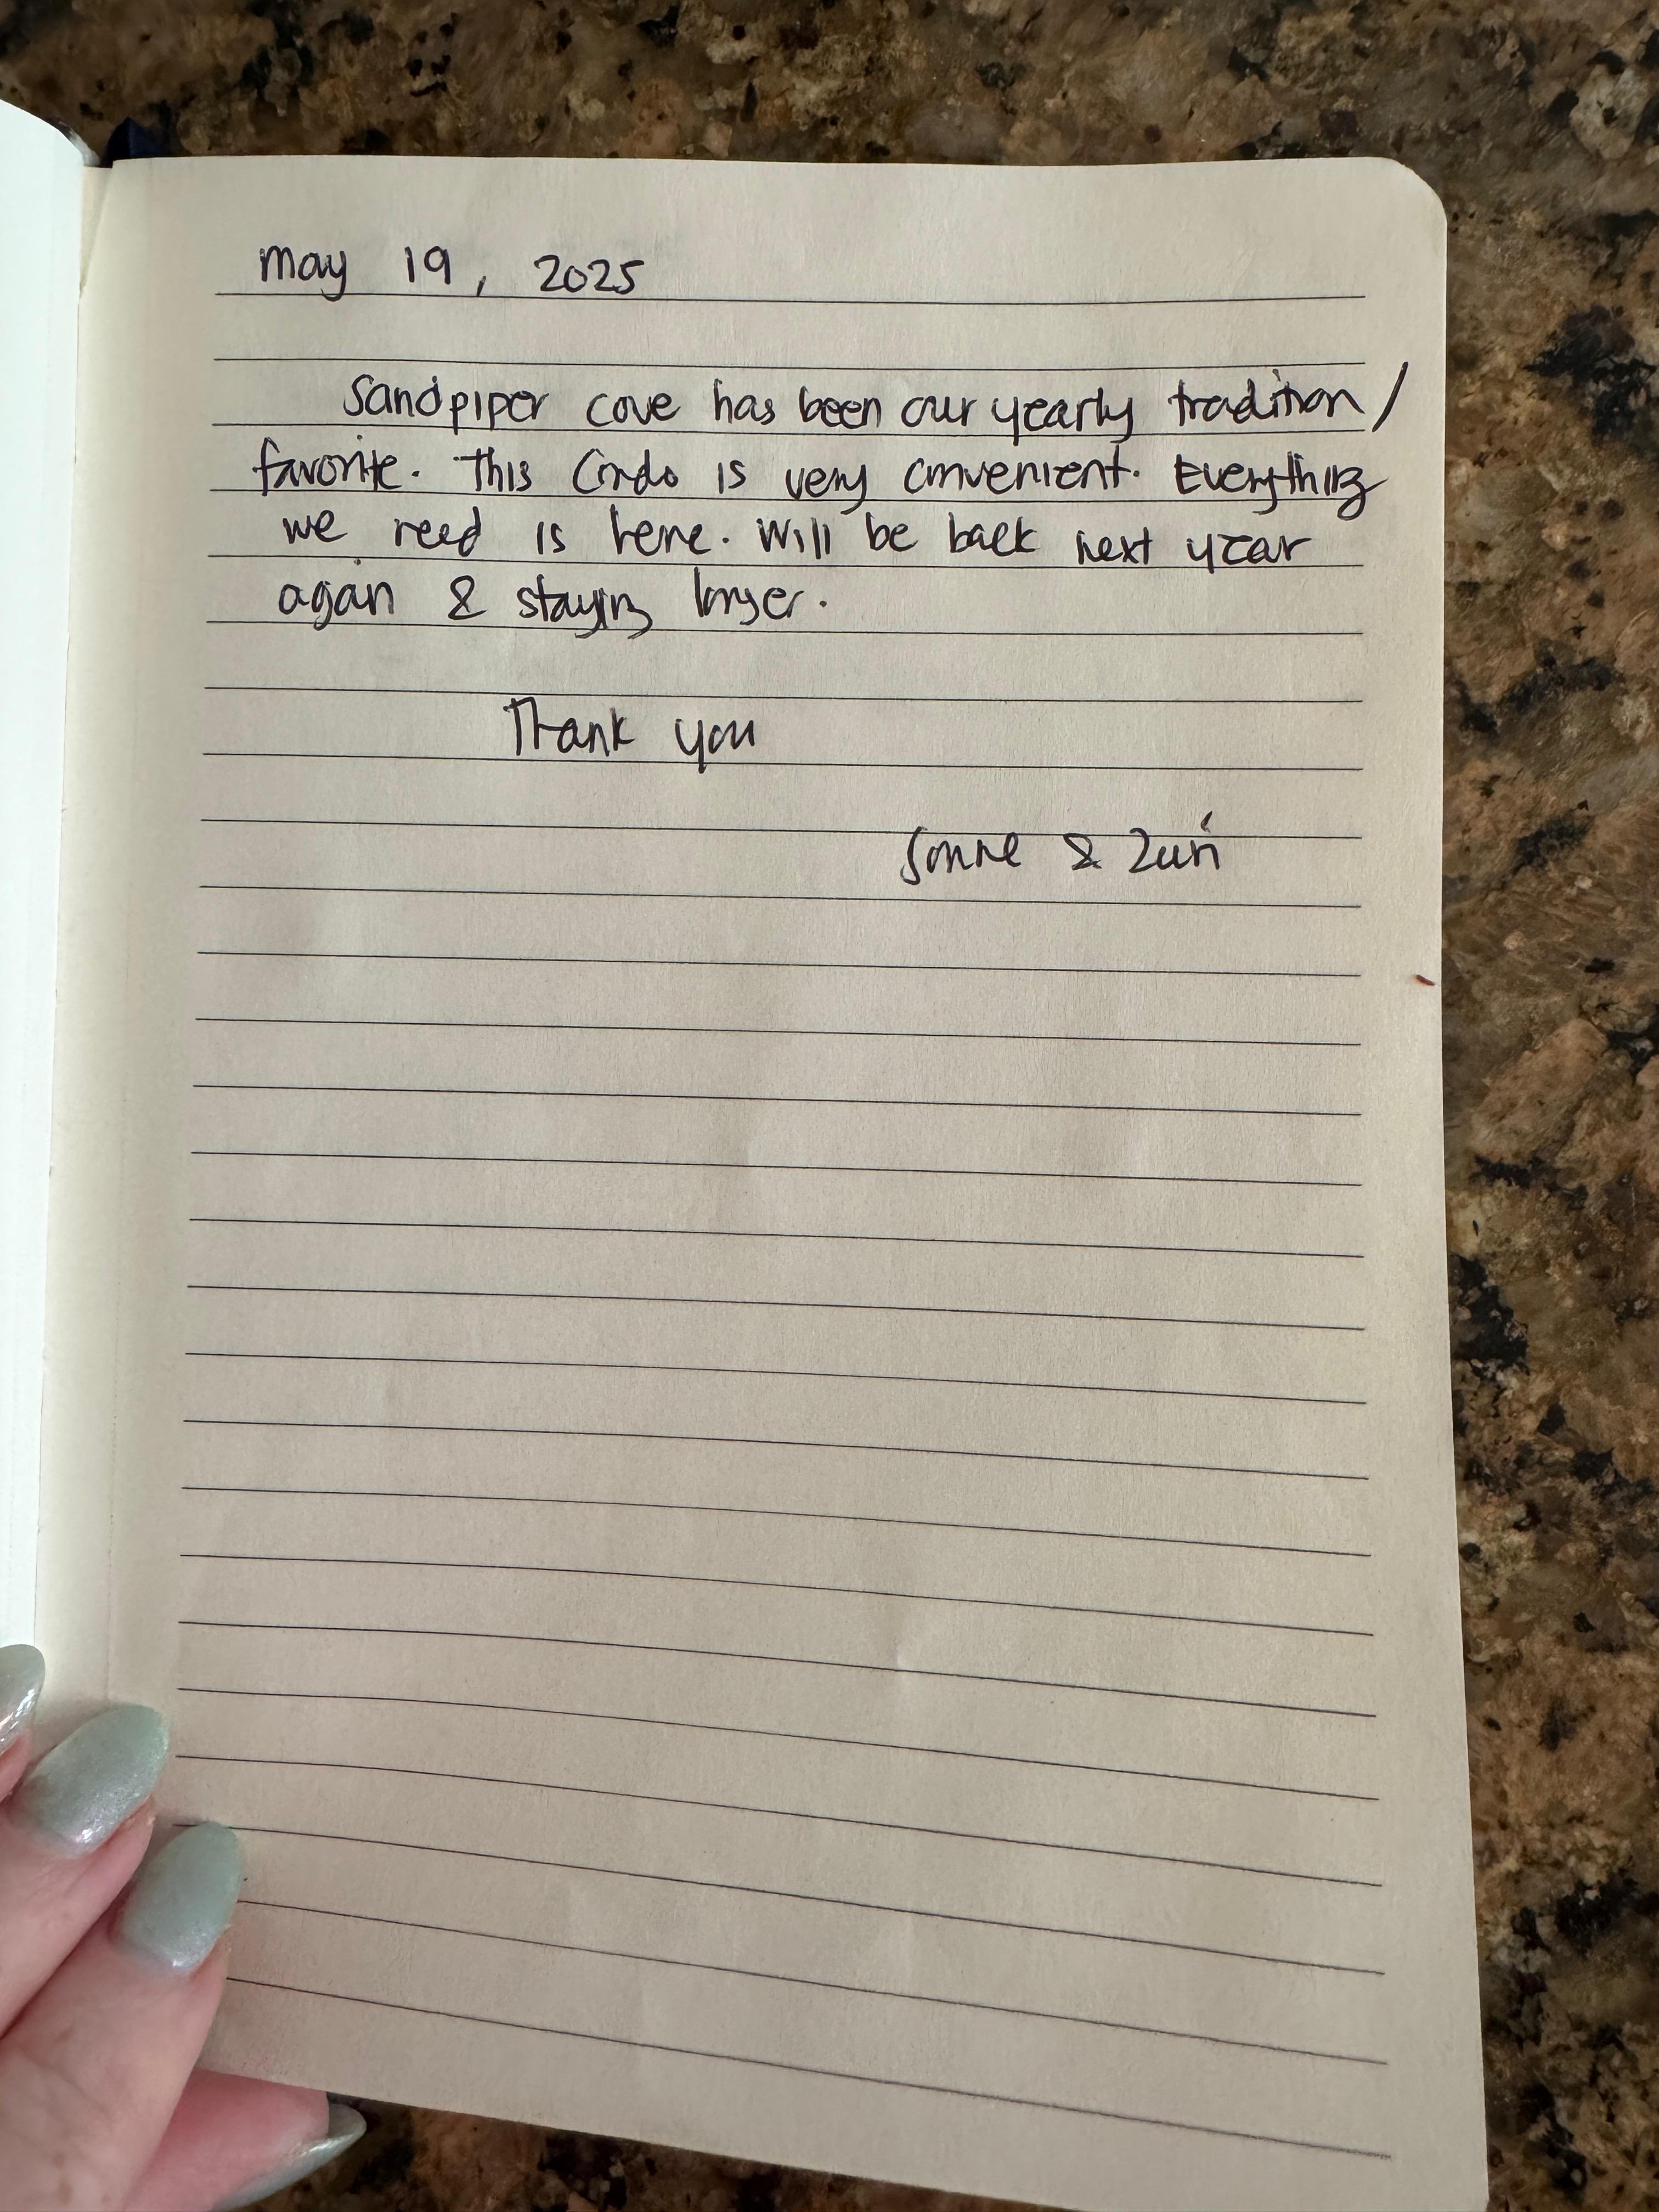 May 19, 2025
Sandpiper cove has been our yearly tradition/
favorite. This Condo is very convenient. Everything
we need is here. Will be back next year
again & staying longer.
Thank you
&